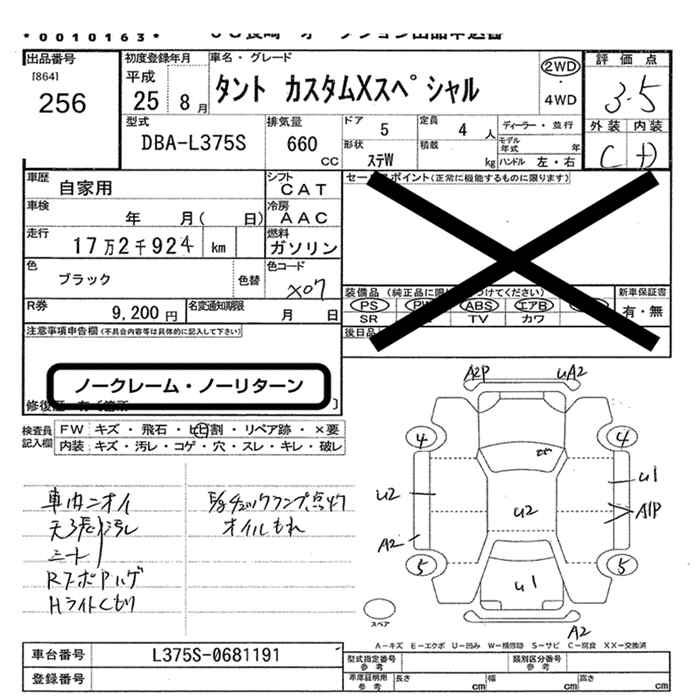 *0010163*
出品番号
[864]
256
初度登録年月
平成
25年8月
車名・グレード
タント カスタムXスペシャル
2WD
・
4WD
評価点
3.5
外装 内装
C D
型式
DBA-L375S
排気量
660
CC
ドア 5
定員 4 人
ディーラー・並行
モデル年式 年
形状
ステW
積載 kg
ハンドル 左・右
車歴
自家用
シフト
CAT
車検
年 月( 日)
冷房
AAC
走行
17万2千924 km
燃料
ガソリン
色
ブラック
色替
色コード
X07
R券
9,200円
名変通知期限
月 日
セールスポイント(正常に機能するものに限ります)
装備品
PS
ABS
エアB
SR
TV
カワ
新車保証書
有・無
後日品
注意事項申告欄(不具合内容等は具体的に記入して下さい)
ノークレーム・ノーリターン
検査員
記入欄
FW キズ・飛石・ヒビ割・リペア跡・×要
内装 キズ・汚レ・コゲ・穴・スレ・キレ・破レ
車内ニオイ
天張汚レ
シート
Hライトくもり
チェックランプ点灯
オイルもれ
A2P
UA2
4
4
U2
U1
U2
A1P
A2
5
5
U1
A2
スペア
A-キズ E-エクボ U-凹み W-補修跡 S-サビ C-腐食 XX-交換済
車台番号
L375S-0681191
登録番号
型式指定番号
参考
類別区分番号
参考
車庫証明用
参考
長さ cm
幅 cm
高さ cm